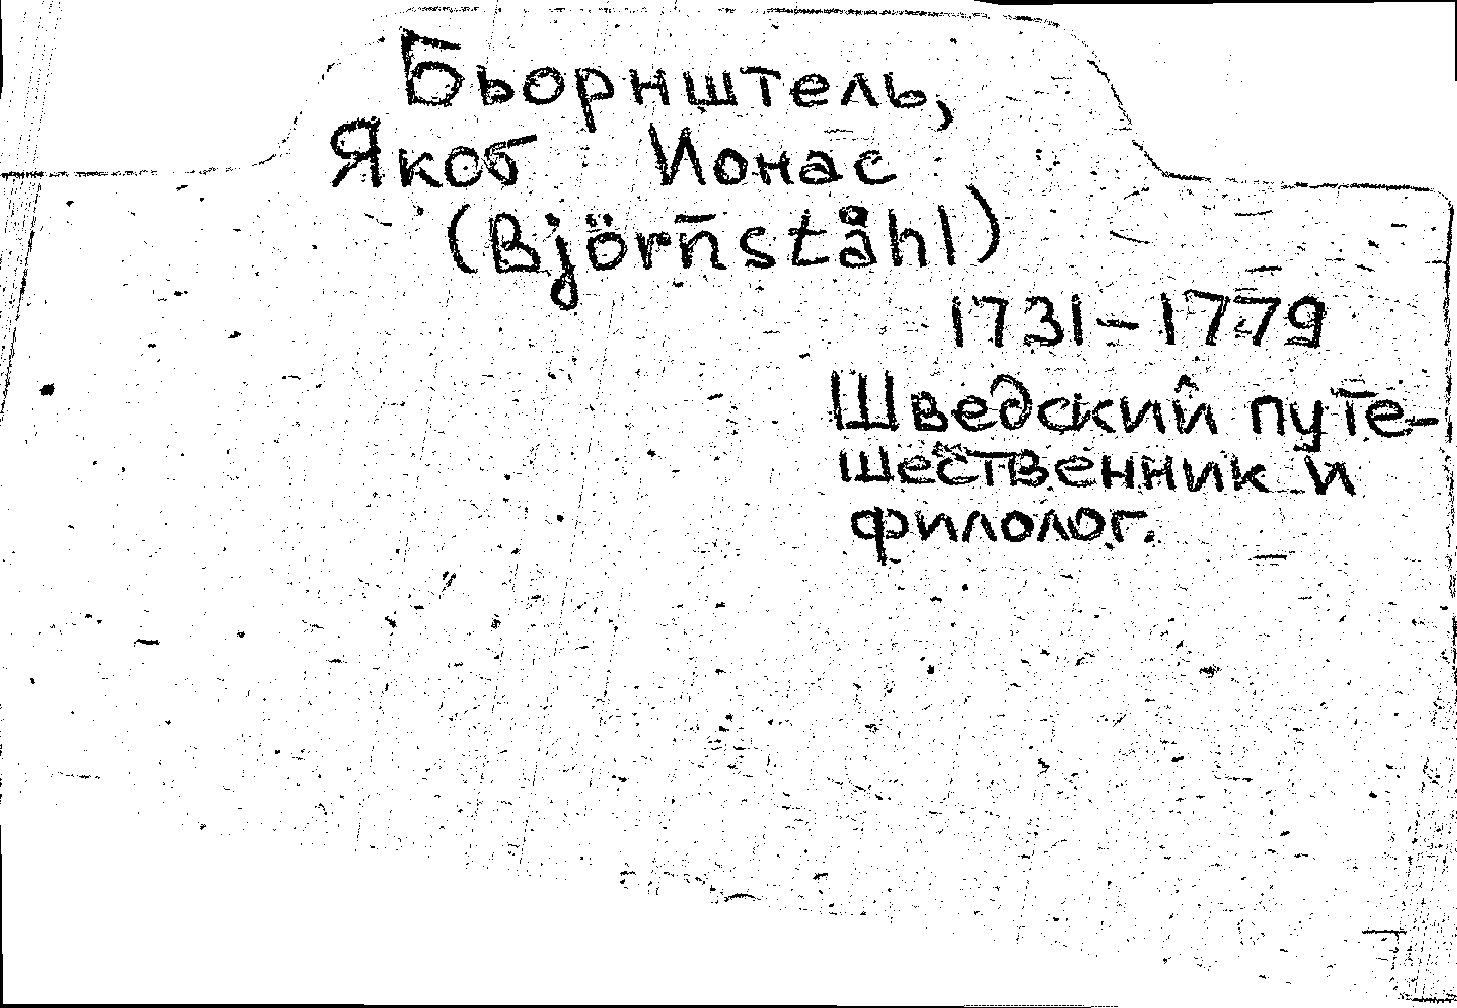 Бьорнштель,
Якоб Ионас
(Björnståhl)
1731–1779
Шведский путе-
шественник и
филолог.